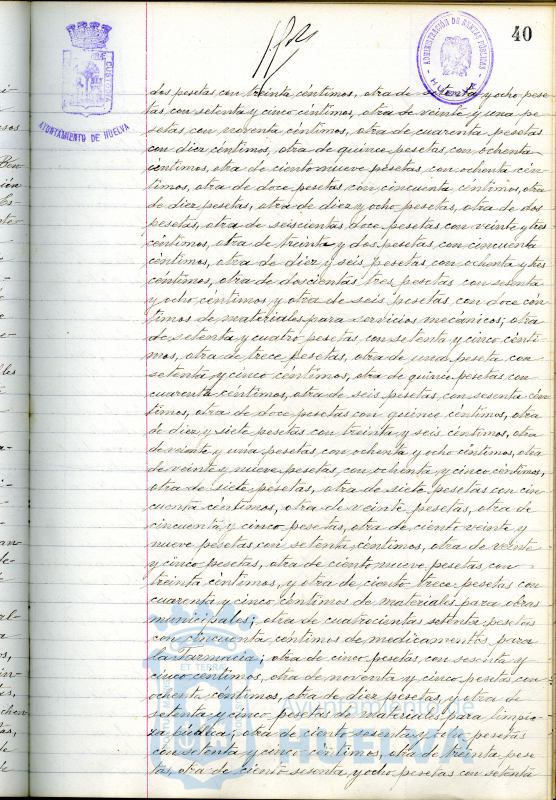 40
ADMINISTRACIÓN DE RENTAS PÚBLICAS
HUELVA
AYUNTAMIENTO DE HUELVA
dos pesetas con treinta céntimos, otra de setenta y ocho pese-
tas con setenta y cinco céntimos, otra de veinte y una pe-
setas con noventa céntimos, otra de cuarenta pesetas
con diez céntimos, otra de quince pesetas con ochenta
céntimos, otra de ciento nueve pesetas con ochenta cén-
timos, otra de doce pesetas con cincuenta céntimos, otra
de diez pesetas, otra de diez y ocho pesetas, otra de dos
pesetas, otra de seiscientas doce pesetas con veinte y tres
céntimos, otra de treinta y dos pesetas con cincuenta
céntimos, otra de diez y seis pesetas con ochenta y tres
céntimos, otra de doscientas tres pesetas con
y ocho céntimos y otra de seis pesetas con doce cén-
timos de materiales para servicios mecánicos; otra
de setenta y cuatro pesetas con setenta y cinco cénti-
mos, otra de trece pesetas, otra de una peseta con
setenta y cinco céntimos, otra de quince pesetas con
cuarenta céntimos, otra de seis pesetas con sesenta cén-
timos, otra de doce pesetas con quince céntimos, otra
de diez y siete pesetas con treinta y seis céntimos, otra
de veinte y una pesetas con ochenta y ocho céntimos, otra
de veinte y nueve pesetas, con ochenta y cinco céntimos,
otra de siete pesetas, otra de siete pesetas con cin-
cuenta céntimos, otra de veinte pesetas, otra de
cincuenta y cinco pesetas, otra de ciento veinte y
nueve pesetas con setenta céntimos, otra de veinte
y cinco pesetas, otra de ciento nueve pesetas con
treinta céntimos, y otra de ciento trece pesetas con
cuarenta y cinco céntimos de materiales para obras
municipales; otra de cuatrocientas setenta pesetas
con cincuenta céntimos de medicamentos para
la Farmacia; otra de cinco pesetas con sesenta y
cinco céntimos, otra de noventa y cinco pesetas con
ochenta céntimos, otra de diez pesetas, y otra de
setenta y cinco pesetas de materiales para limpie-
za pública; otra de ciento sesenta y ocho pesetas
con setenta y cinco céntimos, otra de treinta pese-
tas, otra de ciento sesenta y ocho pesetas con setenta
ET TERRA
Ayuntamiento de
HUELVA